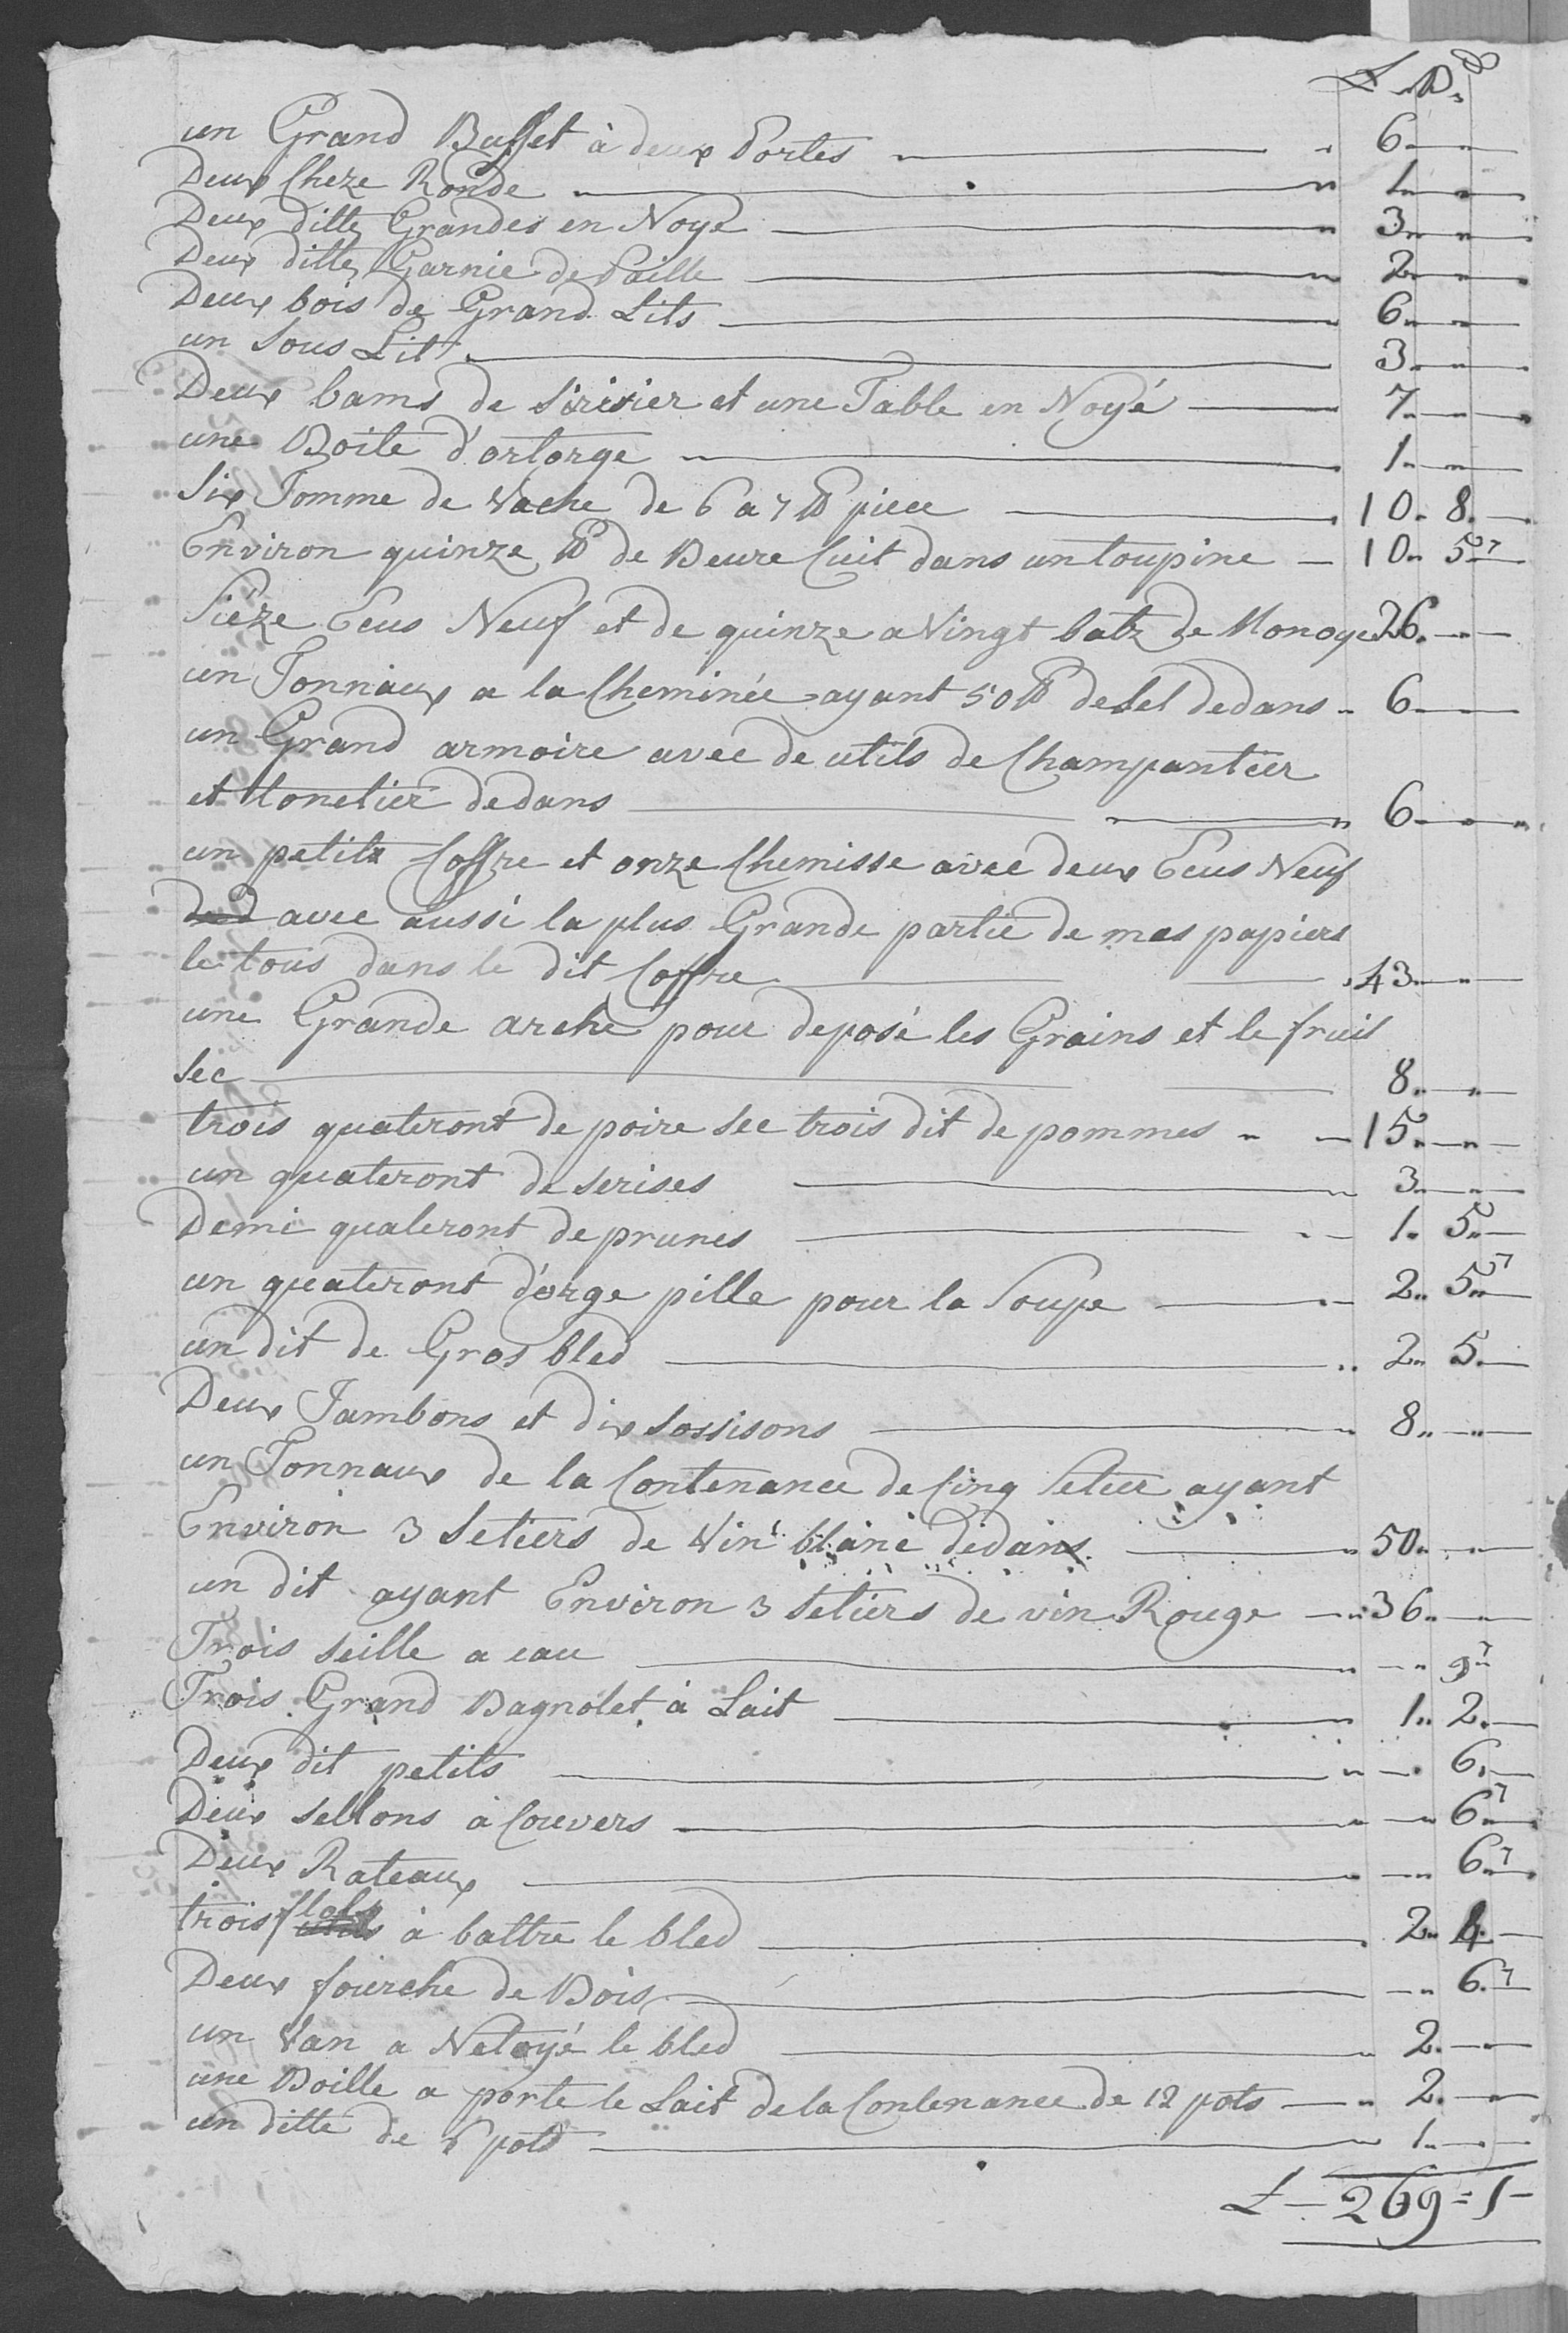 £ β. ₰
un Grand Buffet à deux Portes — 6. —
Deux Cheze Ronde — 1. —
Deux ditte Grandes en Noye — 3. —
Deux ditte Garnie de Paille — 2. —
Deux bois de Grand Lits — 6. —
un Sous Lit — 3. —
Deux bams de Sirisier et une Table en Noyé — 7. —
une Boite d'orlorge — 1. —
Six Tomme de Vache de 6 a 7 ℔ piece — 10. 8. —
Environ quinze ℔ de Beure Cuit dans un toupine — 10. 5. —
Sieze Ecus Neuf et de quinze a Vingt batz de Monoye 26. —
un Tonnaux a la Cheminée ayant 50 ℔ de Sel dedans — 6. —
un Grand armoire avec de utils de Champantier
et tonelier dedans — 6. —
un petits Coffre et onze Chemisse avec deux Ecus Neuf
ded avec aussi la plus Grande partie de mes papiers
le tous dans le dit Coffre — 43. —
une Grande arche pour deposé les Grains et le fruit
Sec — 8. —
trois quateront de poire sec trois dit de pommes — 15. —
un quateront de serises — 3. —
Demi quateront de prunes — 1. 5. —
un quateront d'orge pille pour la Soupe — 2. 5. —
un dit de Gros bled — 2. 5. —
Deux Jambons et dix sossisons — 8. —
un Tonnaux de la Contenance de Cinq Setier ayant
Environ 3 Setiers de Vin blanc dedans — 50. —
un dit ayant Environ 3 Setiers de vin Rouge — 36. —
Trois seille a eau — 9
Trois Grand Bagnolet à Lait — 1. 2. —
Deux dit petits — 6. —
Deux sellons à Couvers — 6. —
Deux Rateaux — 6. —
trois flols à battre le bled — 2. 4. —
Deux fourche de Bois — 6. —
un Van a Netoyé le bled — 2. —
une Boille a porte le Lait de la Contenance de 12 pots — 2. —
un ditte de 6 pots — 1. —
£ — 269 = 1 —